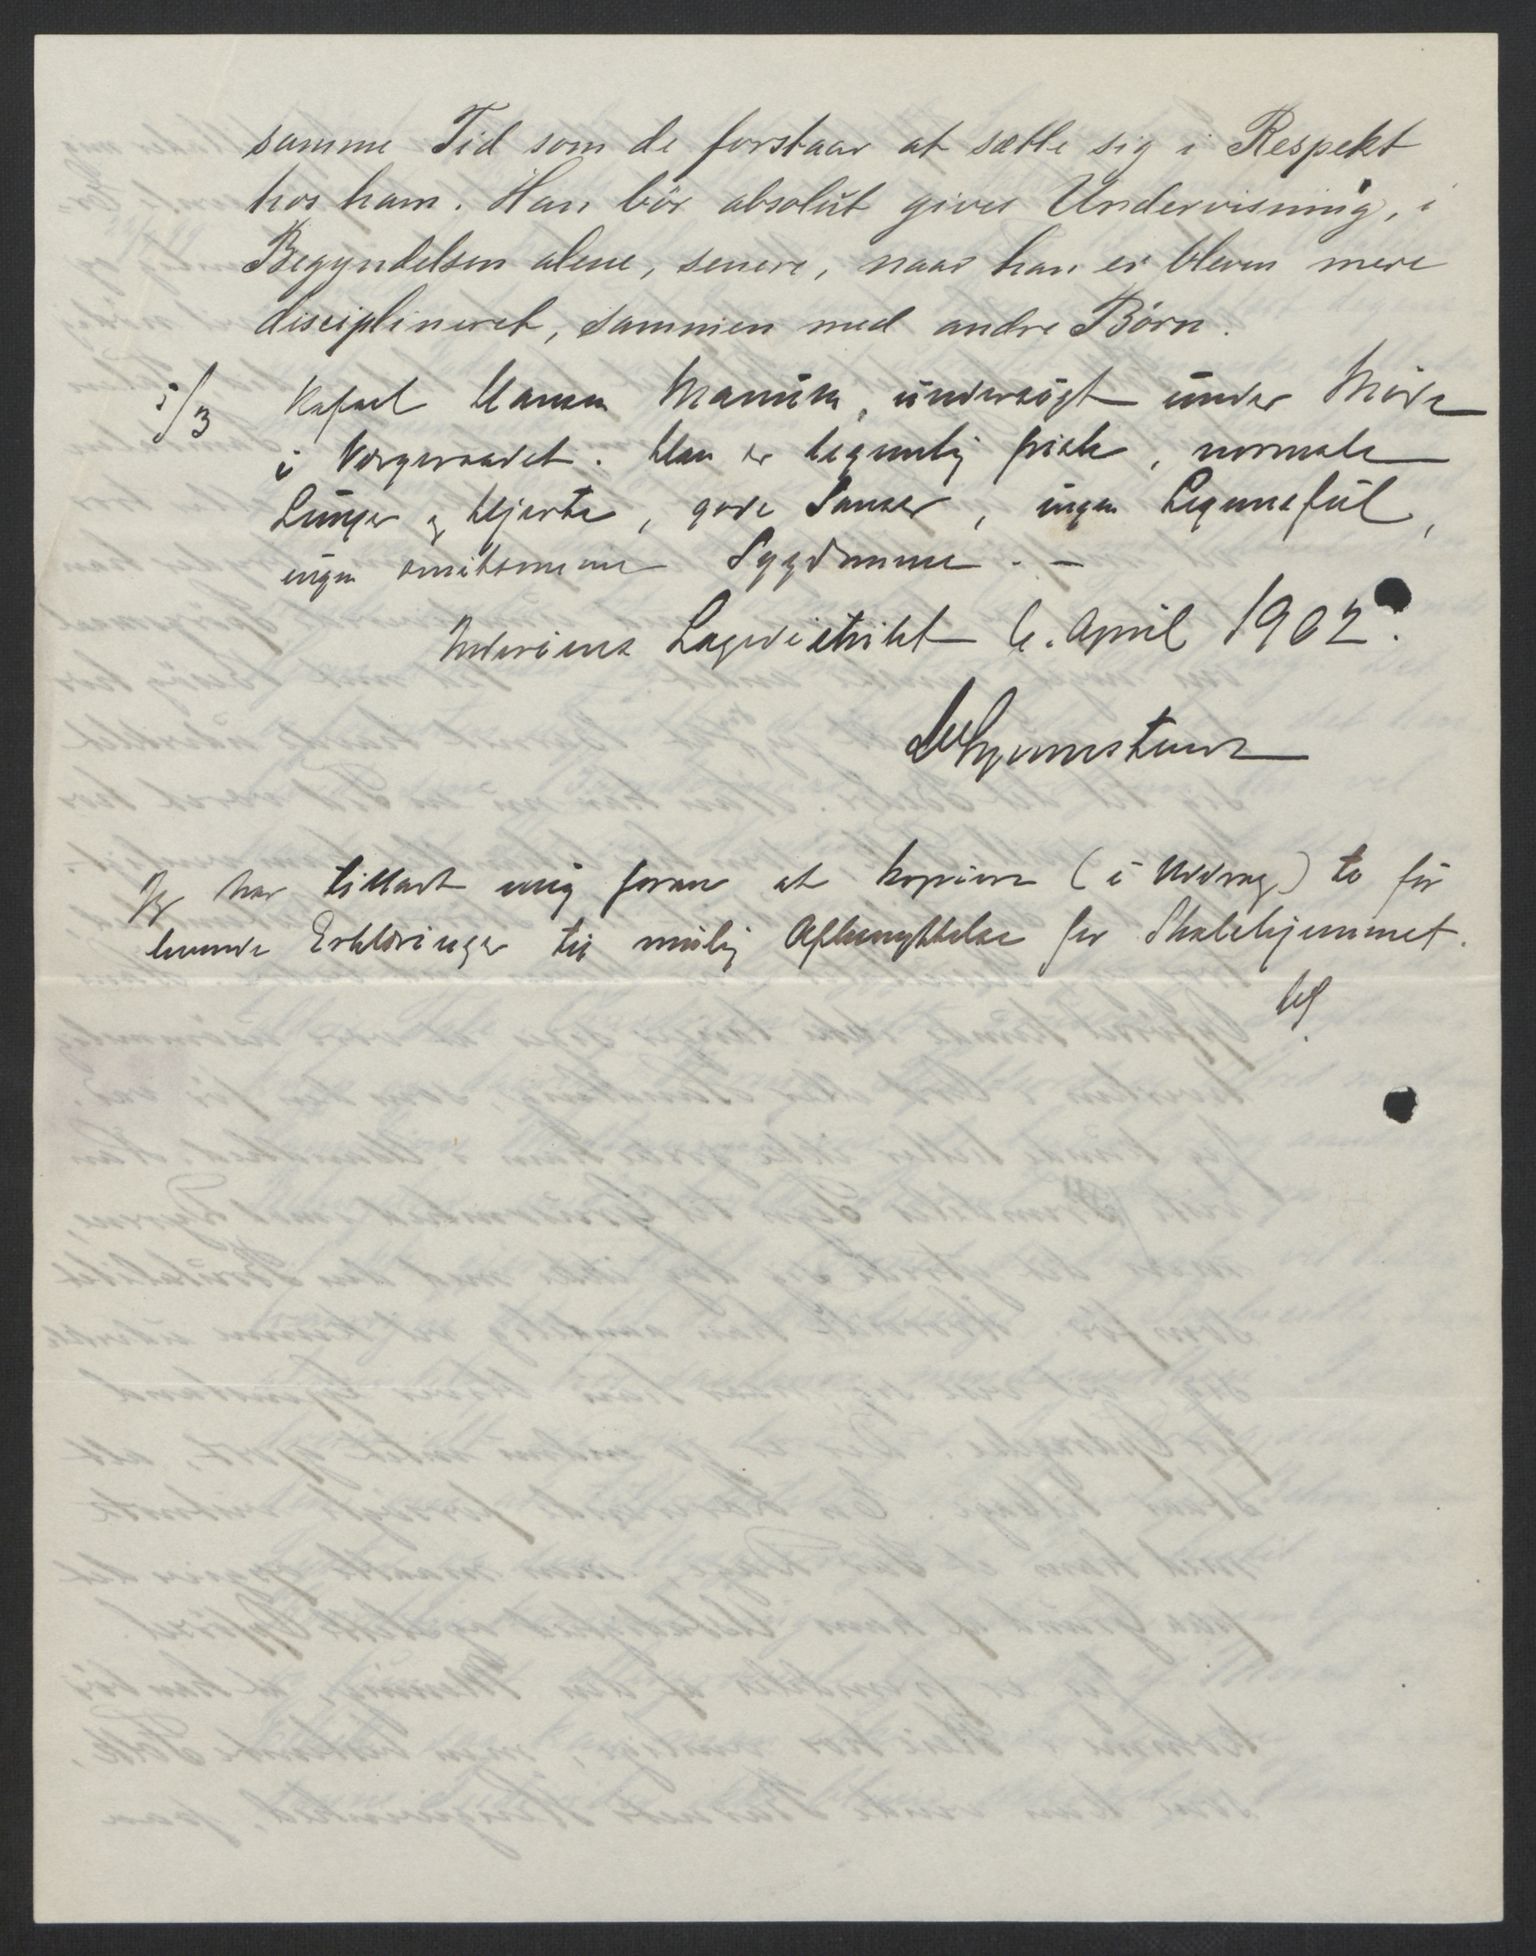 samme Tid som de forstaar at sætte sig i Respekt
hos ham. Han bör absolut gives Undervisning, i
Begyndelsen alene, senere, naar han er bleven mere
disciplineret, sammen med andre Børn.
5/3 Rafael Hansen undersögt under Möde
i Vergeraadet. Han er legemlig frisk, normale
Lunger og Hjerte, gode Sanser, ingen Legemsfeil,
ingen smitsomme Sygdomme. -
Inderöens Lægedistrikt 6. April 1902.
Jeg har tilladt mig foran at kopiere (i Uddrag) to fór
levende Erklæringer til mulig Afbenyttelse for Skolehjemmet.